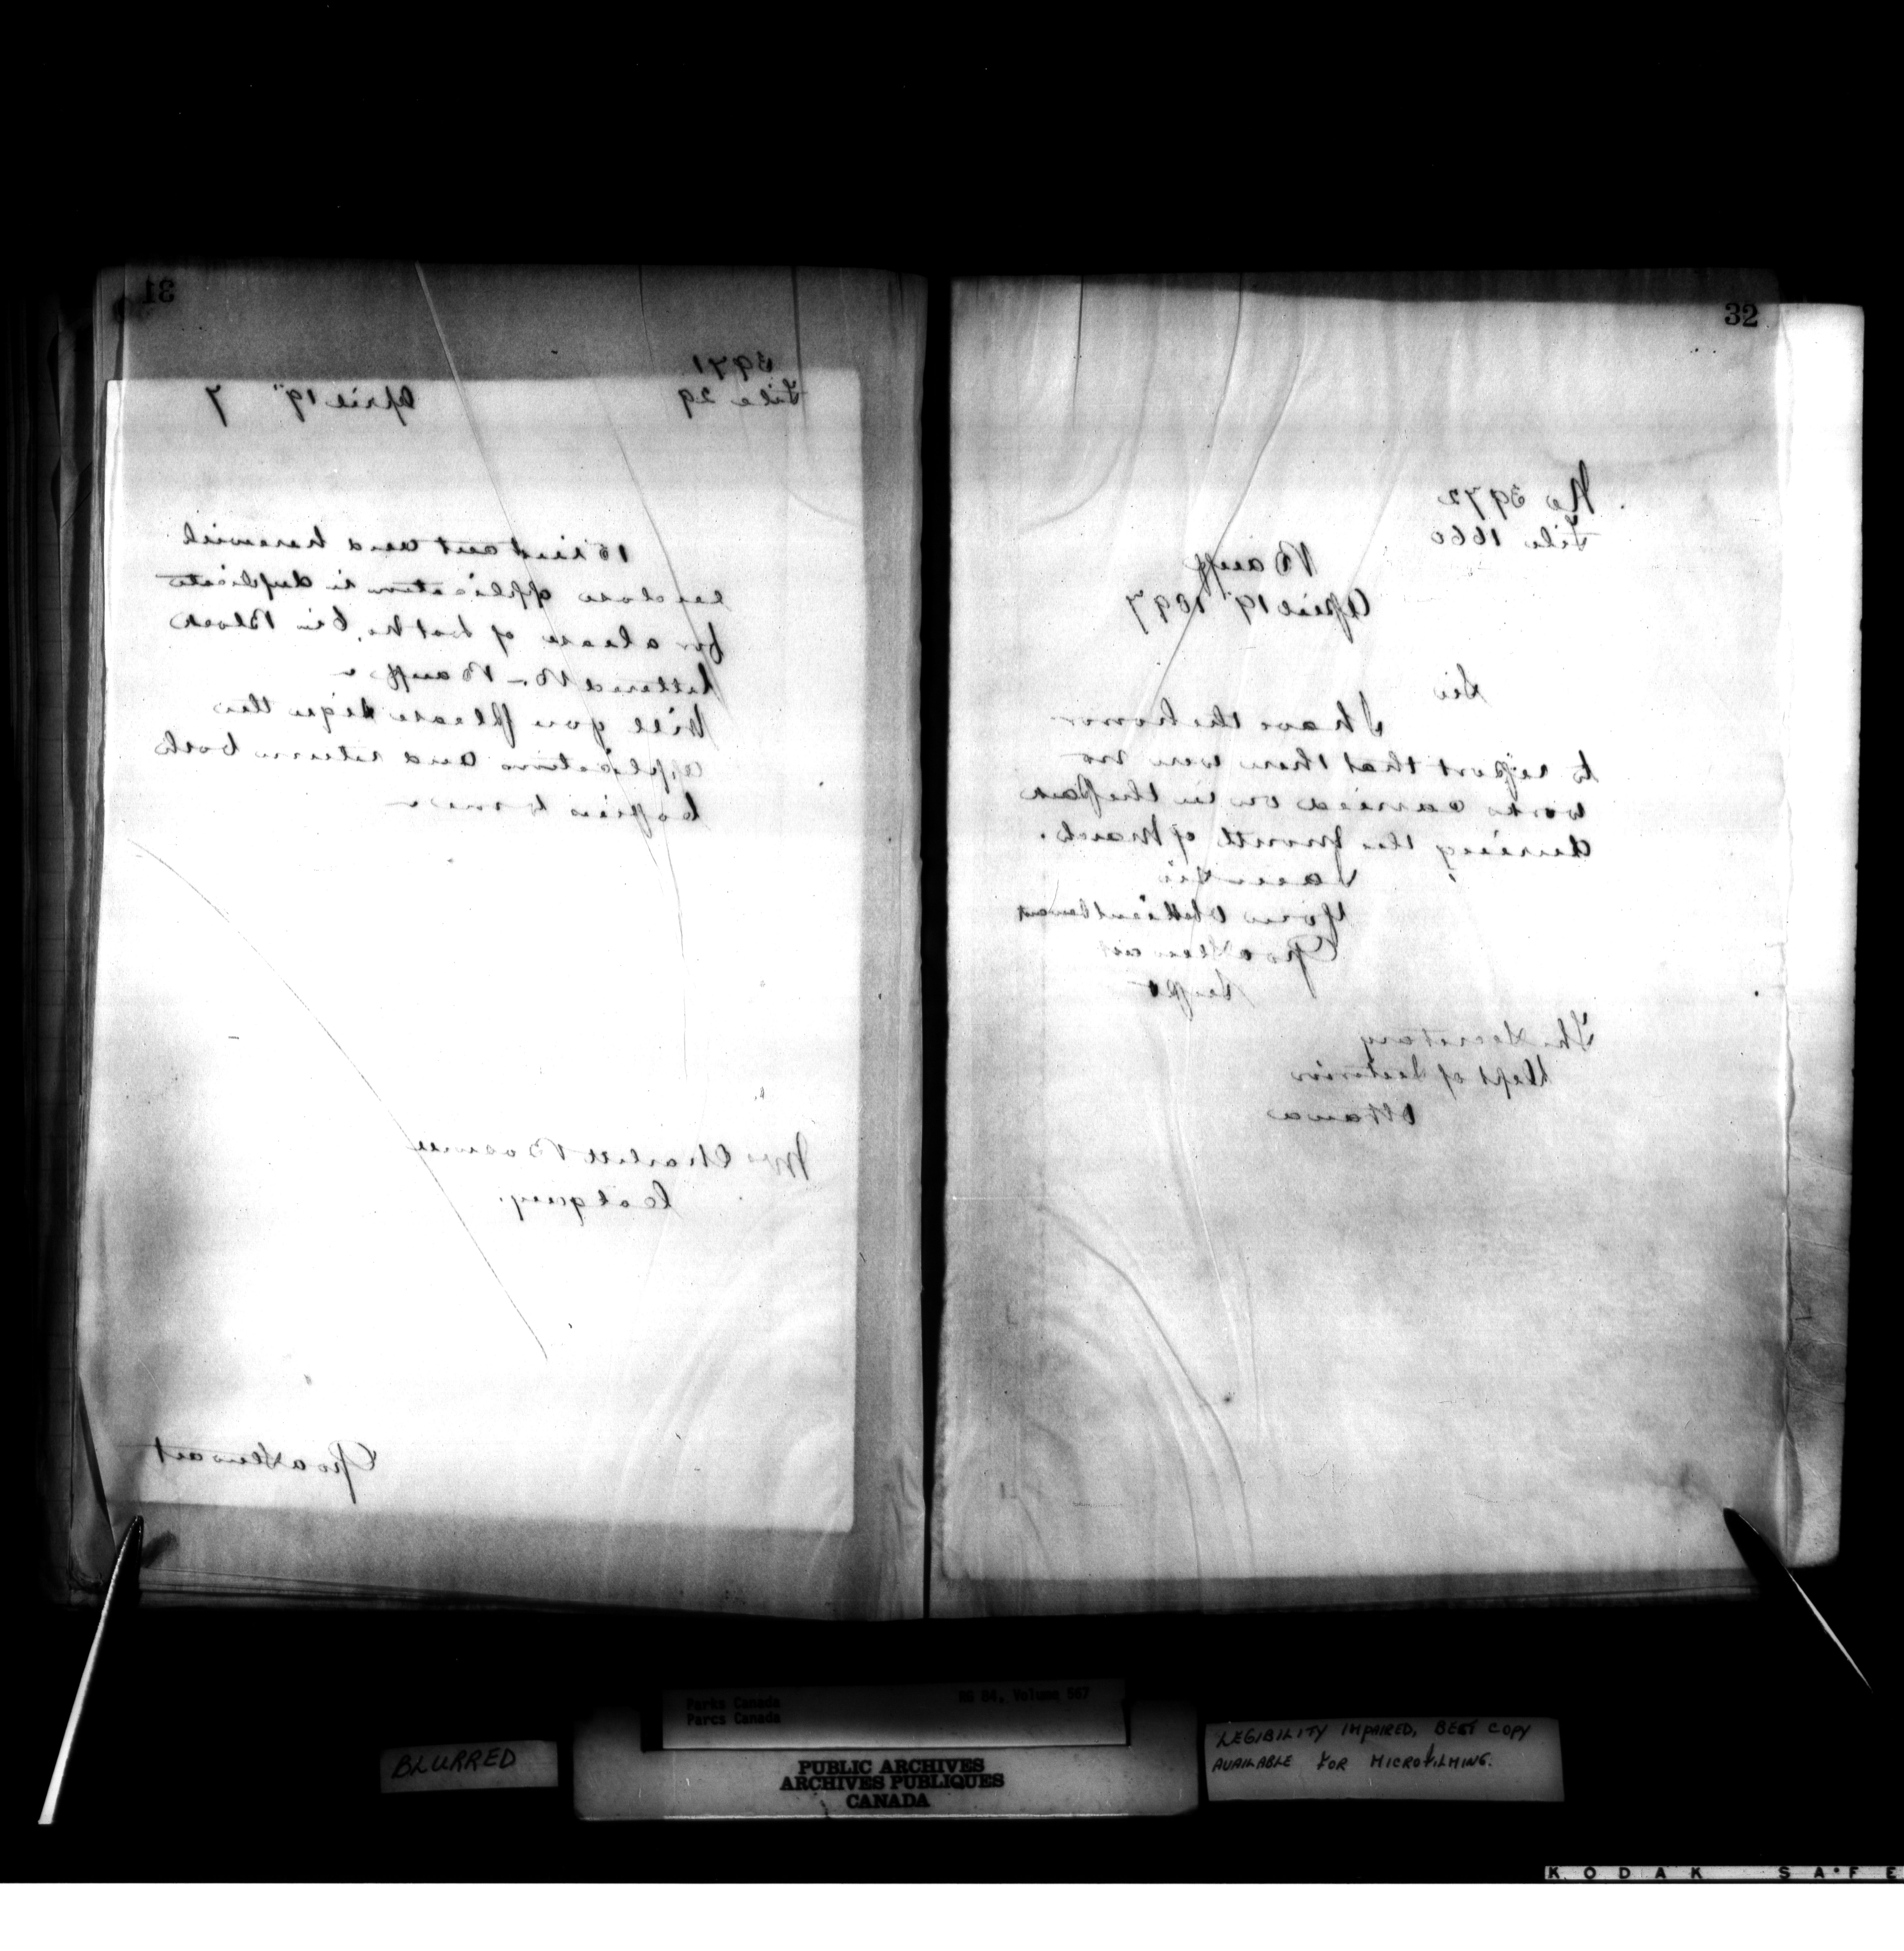 31
3971
File 29 April 19" 7
15 instant and herewith
enclose application in duplicate
for a lease of Lot No. 6 in Block
lettered B. Banff
Will you please sign the
application and return both
copies to me
Mrs Charlotte
Calgary.
Geo A Stewart
32
No 3972
File 1660
Banff
April 19" 1897
Sir
I have the honor
to report that there were no
works carried on in the Park
during the month of March.
I am Sir
Your Obedient Servant
Geo A Stewart
Supt
The Secretary
Dept of Interior
Ottawa
Parks Canada RG 84, Volume 567
Parcs Canada
BLURRED
PUBLIC ARCHIVES
ARCHIVES PUBLIQUES
CANADA
LEGIBILITY IMPAIRED, BEST COPY
AVAILABLE FOR MICROFILMING.
KODAK SAFE